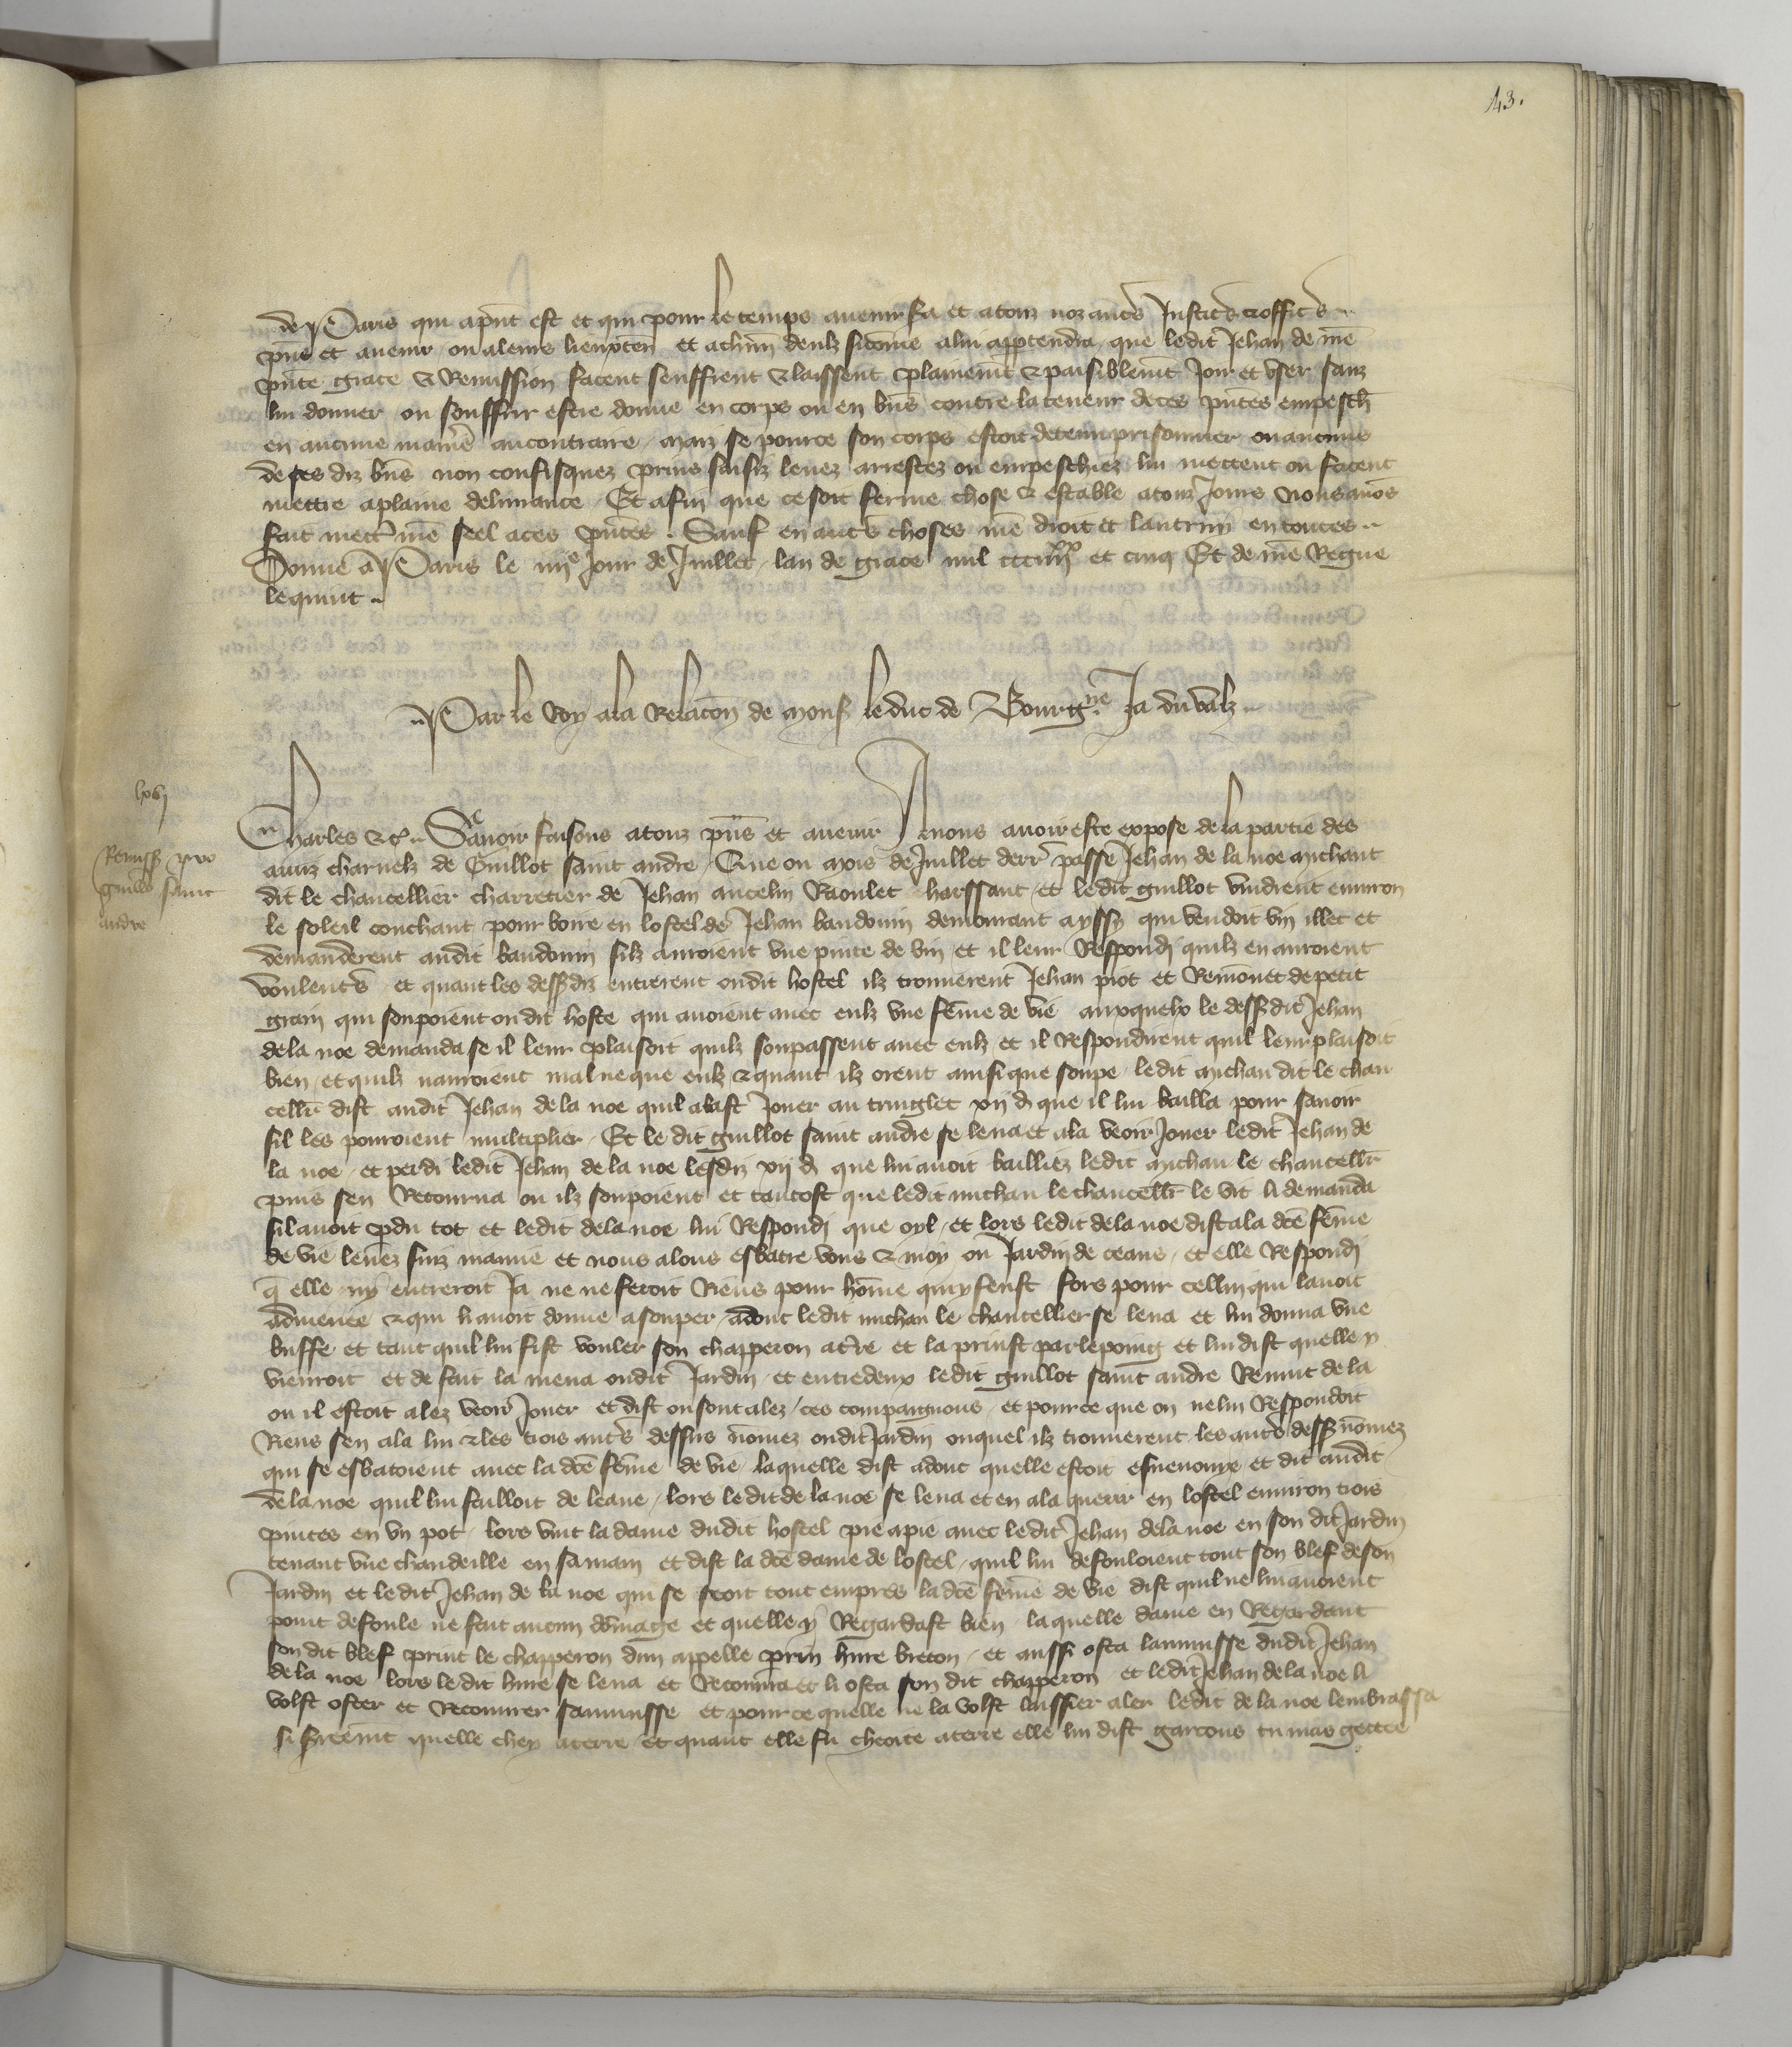 43.
de Paris qui apnt est et qui pour le temps avenir sa et atouz noz autres Justic's et offic's
pns et avenir ou aleurs lieuxten et achun deulz sicome alui appartendra que ledit Jehan de nre
pnte grace et Remission facent seuffrent et laissent plainemt et paisiblemt Joir et user sanz
lui donner ou souffrir estre donne en corps ou en bns contre la teneur de ces pntes empesch
en aucune maniere aucontraire mais se pource son corps estoit detenu prisonnier ou aucuns
de ses diz bns non confisquez prins saisiz levez arrestez ou empeschiez lui mettent ou facent
mettre aplaine delivrance Et afin que ce soit ferme chose et estable atouz Jours nous avons
fait mectre nre seel aces pntes Sauf en autres choses nre droit et lautruy en toutes
Donne a Paris le iiije Jour de Juillet lan de grace mil ccciiijxx et cinq Et de nre Regne
le quint
Par le Roy ala Relacion de mons le duc de Bourgne Ja duvalz
lxvj
Remiss pro
guillo saint
andre
Charles etc Savoir faisons atouz pns et avenir A nous avoir este expose de la partie des
amis charnelz de Guillot saint andre Que ou mois de Juillet derr passe Jehan de la noe michaut
dit le chancellier charretier de Jehan ancelin Raoulet harssant et ledit guillot vindrent environ
le soleil couchant pour boire en lostel de Jehan baudouin demourant ayssy qui vendoit vin illec et
demanderent audit baudouin silz auroient une pinte de vin et il leur Respondi quilz en auroient
voulentrs et quant les dessdiz entrerent oudit hostel ilz trouverent Jehan piot et Remonet de petit
grain qui soupoient oudit hoste qui avoient avec eulz une feme de vie auxquelx le dessdit Jehan
de la noe demanda se il leur plaisoit quilz soupassent avec eulz et il Respondirent quil leur plaisoit
bien et quilz nauroient mal ne que eulz et quant ilz orent ainsi que soupe ledit michau dit le chan
cellr dist audit Jehan de la noe quil alast Jouer au tringlet xij d que il lui bailla pour savoir
sil les pourroient multiplier Et le dit guillot saint andre se leva et ala veoir Jouer ledit Jehan de
la noe et perdi ledit Jehan de la noe lesdiz xij d que lui avoit bailliez ledit michau le chancellr
puis sen Retourna ou ilz soupoient et tantost que ledit michau le chancellr le vit li demanda
sil avoit pdu tot et ledit de la noe lui Respondi que oyl et lors ledit de la noe dist ala dce feme
de vie levez suz mamie et nous alons esbatre vous et moy ou Jardin de ceans et elle Respondi
q elle ny entreroit Ja ne ne feroit Riens pour home qui y feust fors pour cellui qui lavoit
admenee et qui li avoit donne asouper adonc ledit michau le chancellier se leva et lui donna une
buffe et tant quil lui fist vouler son chapperon atre et la prinst par le poing et lui dist quelle y
vienroit et de fait la mena oudit Jardin et entredeux ledit guillot saint andre Revint de la
ou il estoit alez veoir Jouer et dist ou sont alez ces compaignons et pource que on ne lui Respondoit
Riens sen ala lui et les trois autrs dessus nomez oudit Jardin ouquel ilz trouverent les autrs dess nomez
qui se esbatoient avec la dce feme de vie laquelle dist adonc quelle estoit esvenouye et dit audit
de la noe quil lui failloit de leaue lors ledit de la noe se leva et en ala querir en lostel environ trois
pintes en un pot lors vint la dame dudit hostel pie apie avec ledit Jehan dela noe en son dit Jardin
tenant une chandeille en sa main et dist la dce dame de lostel quil lui defouloient tout son blef de son
Jardin et ledit Jehan de la noe qui se seoit tout empres la dce feme de vie dist quil ne lui avoient
point defoule ne fait aucun domage et quelle y Regardast bien laquelle dame en Regardant
son dit blef print le chapperon dun appelle prin hure breton et aussi osta laumusse dudit Jehan
de la noe lors ledit hure se leva et Recouvra et li osta son dit chapperon et ledit Jehan de la noe li
volst oster et Recouvrer saumusse et pource quelle ne la volst laissier aler ledit de la noe lembrassa
si freemt quelle chey aterre et quant elle fu cheoite aterre elle lui dist garcons tu mas gettee